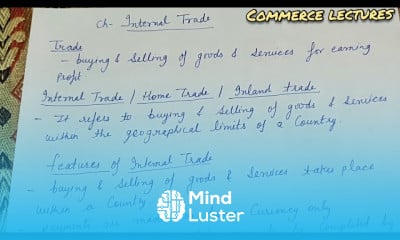 Ch- Internal Trade
COMMERCE LECTURES
Trade
- buying & Selling of goods & Services for earning
Profit
Internal Trade / Home Trade / Inland trade
- It refers to buying & Selling of goods & Services
within the geographical limits of a Country.
features of Internal Trade
- buying & Selling of goods & Services takes place
within a Country
Payments are made Currency only
Mind
Luster